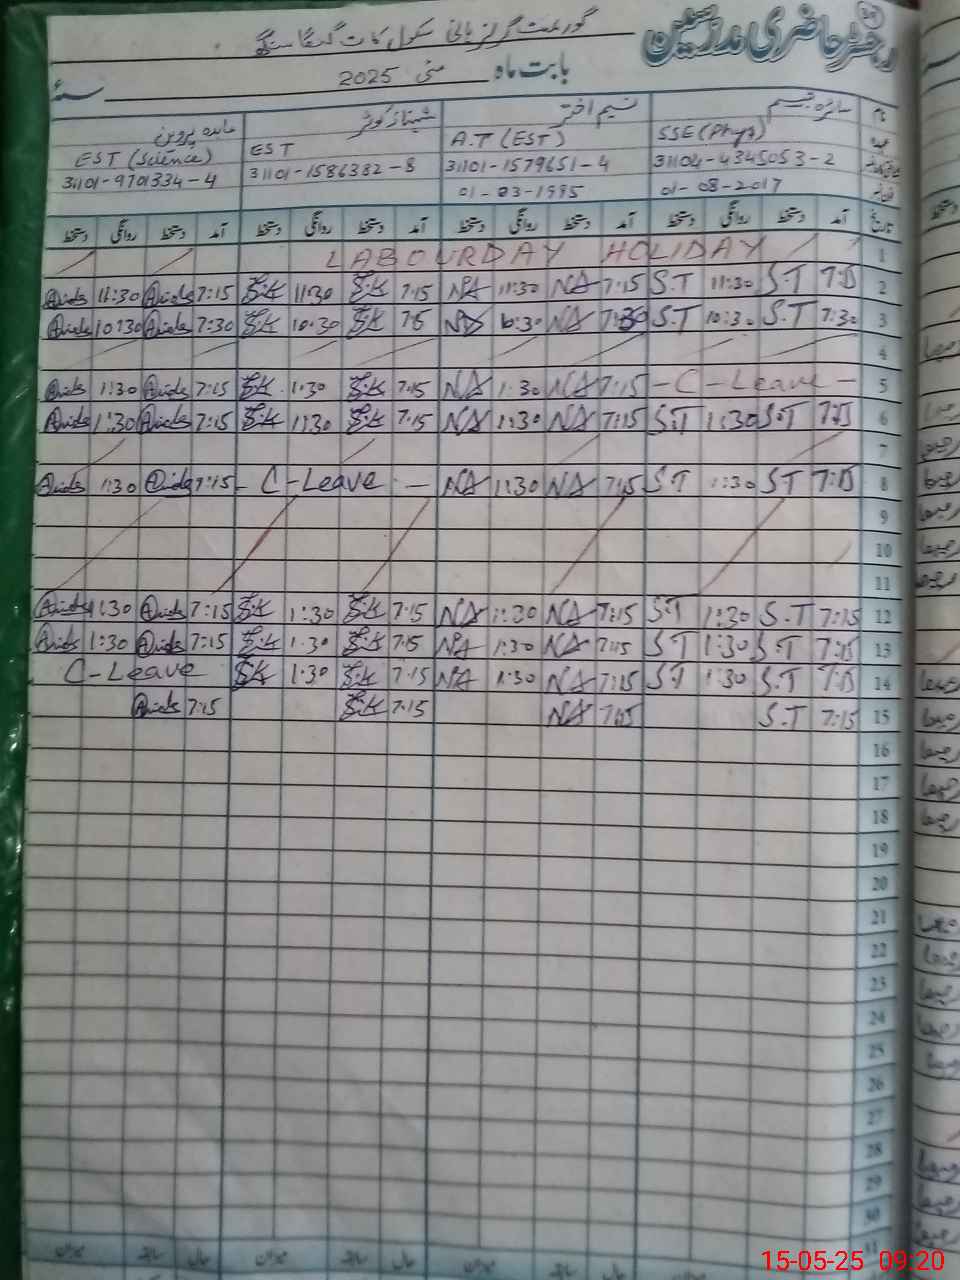 رجسٹر حاضری مدرسین
گورنمنٹ گرلز ہائی سکول
بابت ماہ مئی 2025 سنۂ
نام سائرہ تبسم نسیم اختر شہناز کوثر مائدہ پروین
عہدہ SSE (Phy) A.T (EST) EST EST (Science)
31104-4345053-2 31101-1579651-4 31101-1586382-8 31101-9701334-4
01-08-2017 01-03-1995
تاریخ آمد دستخط روانگی دستخط آمد دستخط روانگی دستخط آمد دستخط روانگی دستخط آمد دستخط روانگی دستخط
LABOURDAY HOLIDAY 1
11:30 7:15 S.K 11:30 S.K 7.15 NA 11:30 NA 7:15 S.T 11:30 S.T 7:15 2
10:30 7:30 S.K 10:30 S.K NA 10:30 NA 7:30 S.T 10:30 S.T 7:30 3
4
1:30 7:15 S.K 1.30 S.K 7.15 NA 1:30 NA 7:15 -C-Leave- 5
1:30 7:15 S.K 1:30 S.K 7.15 NA 1:30 NA 7:15 S.T 1:30 S.T 7:15 6
7
1:30 7:15 - C-Leave - NA 1:30 NA 7:15 S.T 1:30 S.T 7:15 8
9
10
11
1:30 7:15 S.K 1:30 S.K 7.15 NA 1:30 NA 7:15 S.T 1:30 S.T 7:15 12
1:30 7:15 S.K 1.30 S.K 7.15 NA 1:30 NA 7:15 S.T 1:30 S.T 7:15 13
C-Leave S.K 1.30 S.K 7.15 NA 1:30 NA 7:15 S.T 1:30 S.T 7:15 14
7:15 S.K 7.15 NA 7:15 S.T 7:15 15
16
17
18
19
20
21
22
23
24
25
26
27
28
29
30
حال سابقہ میزان حال سابقہ میزان
15-05-25 09:20